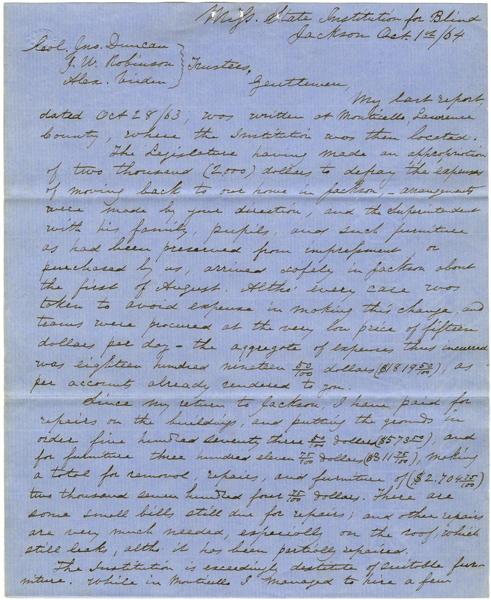 Miss. State Institution for Blind
Jackson Oct. 1st/64
Col. Jno. Duncan
J. W. Robinson } Trustees,
Alex. Virden
Gentlemen,
My last report,
dated Oct 28/63, was written at Monticello, Lawrence
County, where the Institution was then located.
The Legislature having made an appropriation
of two thousand (2000) dollars to defray the expenses
of moving back to our home in Jackson, arrangements
were made by your direction, and the Superintendent
with his family, pupils, and such furniture
as had been preserved from impressment or
purchased by us, arrived safely in Jackson about
the first of August. Altho' every care was
taken to avoid expense in making this change, and
teams were procured at the very low price of fifteen
dollars per day – the aggregate of expenses thus incurred
was eighteen hundred nineteen 50/100 dollars ($1819 50/100), as
per accounts already rendered to you.
Since my return to Jackson, I have paid for
repairs on the buildings, and putting the grounds in
order five hundred seventy three dollars ($573), and
for furniture three hundred eleven 75/100 dollars ($311 75/100), making
a total for removal, repairs, and furniture of ($2.704 25/100)
two thousand seven hundred four 25/100 dollars. There are
some small bills still due for repairs; and other repairs
are very much needed, especially on the roof which
still leaks, altho it has been partially repaired.
The Institution is exceedingly destitute of suitable fur-
niture. While in Monticello I managed to hire a few